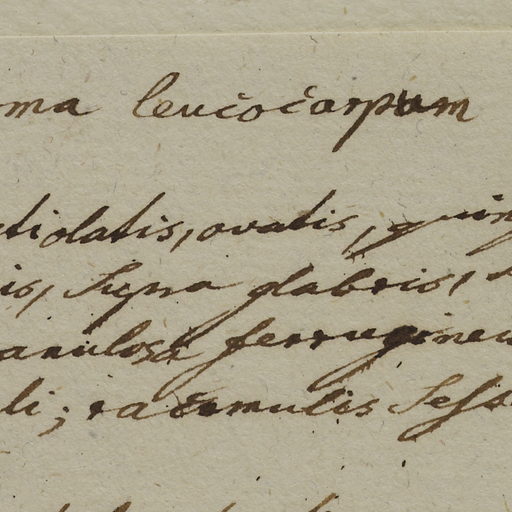 oma leucocarpum
etiolatis, ovatis, quin
is, supra glabris, s
anulosa ferrugineu
li; racemulis sess